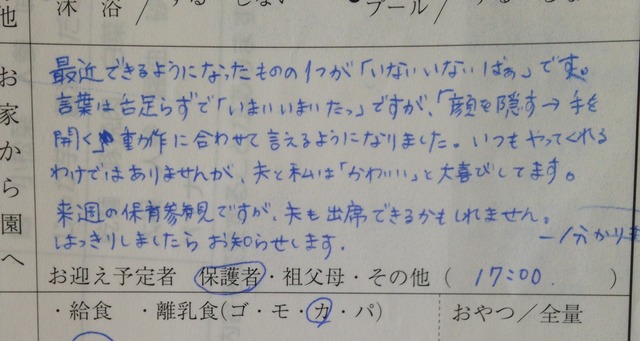 他 沐 浴 / する・しない プール / する・しない
お家から園へ
最近できるようになったものの1つが「いないいないばぁ」です。
言葉は舌足らずで「いまいいまいたっ」ですが、「顔を隠す→手を
開く」動作に合わせて言えるようになりました。いつもやってくれる
わけではありませんが、夫と私は「かわいい」と大喜びしてます。
来週の保育参観ですが、夫も出席できるかもしれません。
はっきりしましたらお知らせします。
→分かりま
お迎え予定者 保護者・祖父母・その他 ( 17:00 )
・給食 ・離乳食(ゴ・モ・カ・パ) おやつ/全量